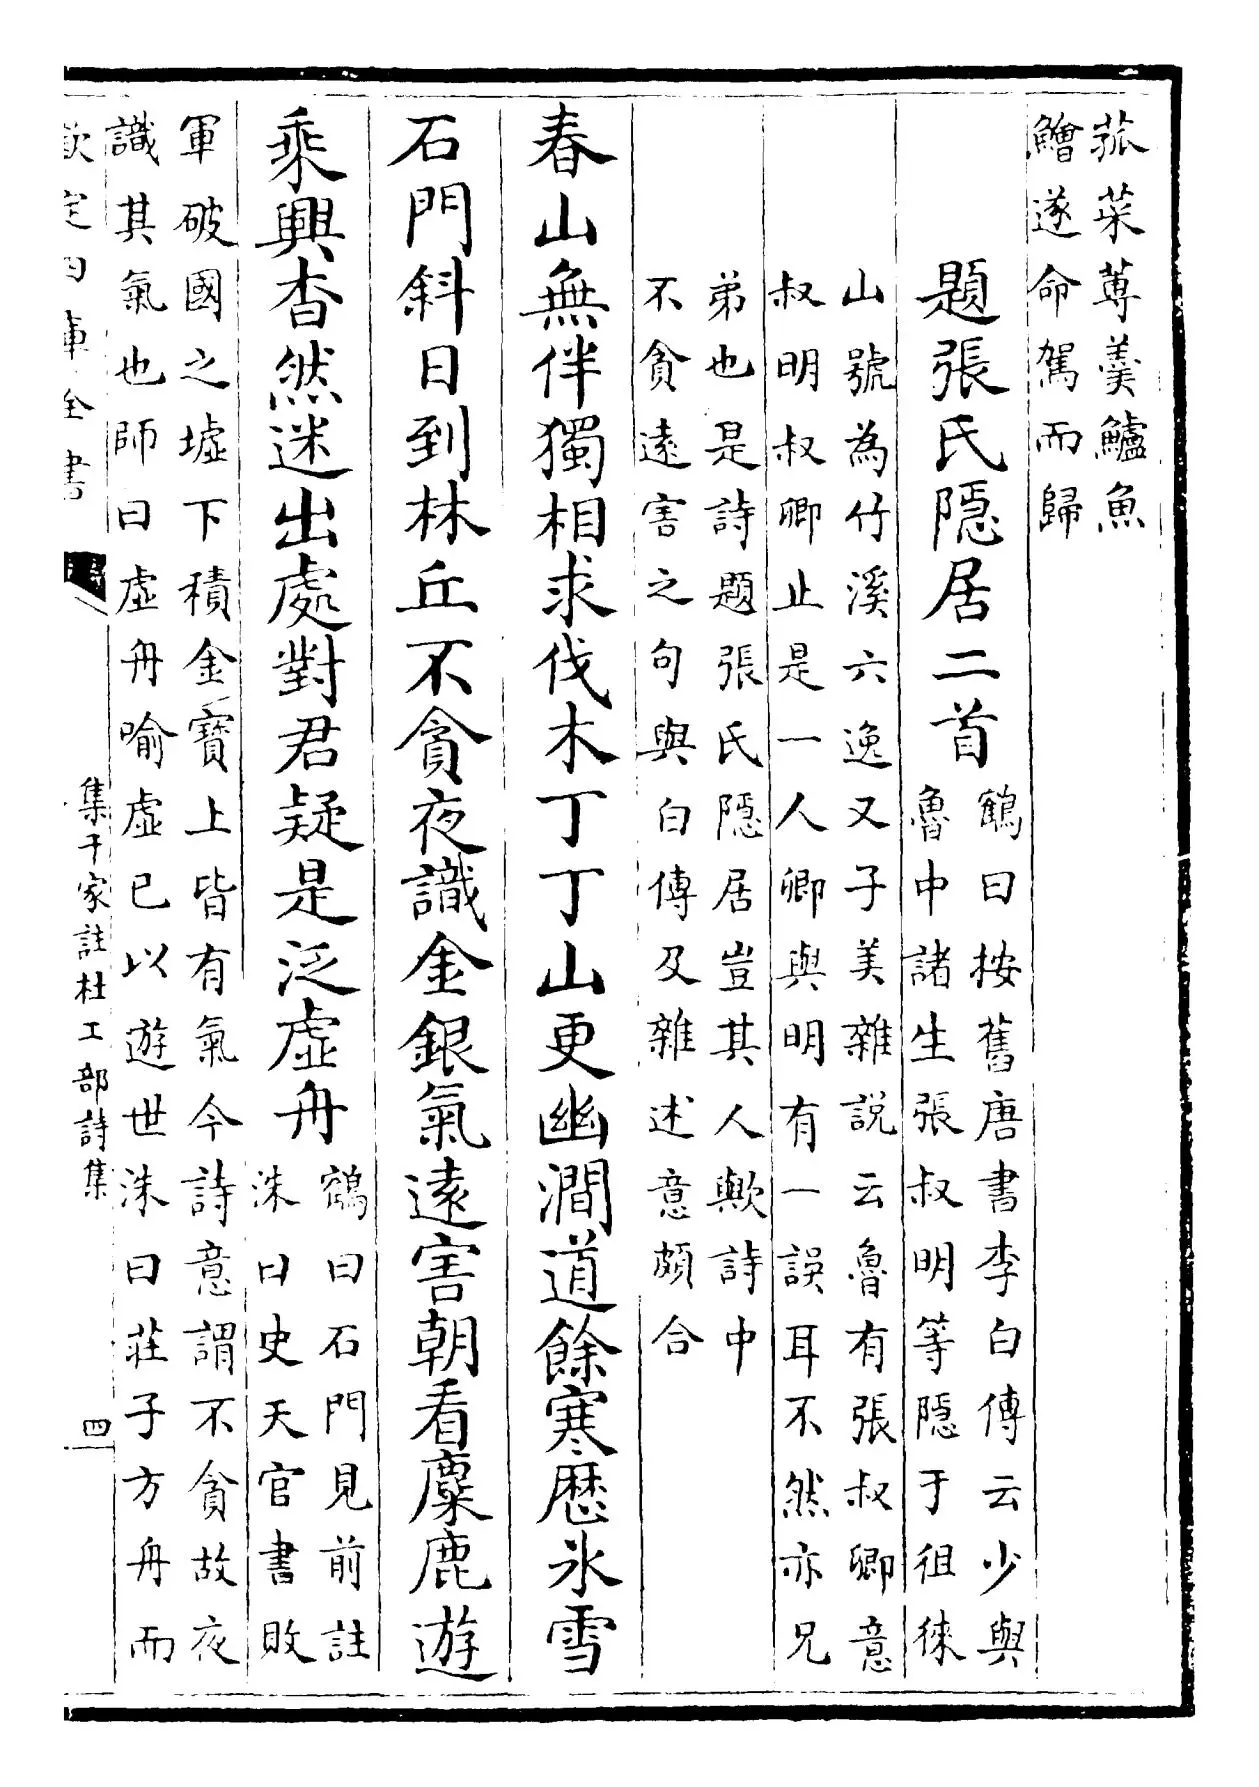 菰菜蓴羮鱸魚
鱠遂命駕而歸
題張氏隠居二首
鶴曰按舊唐書李白傳云少與
魯中諸生張叔明等隠于徂徠
山號為竹溪六逸又子美雜説云魯有張叔卿意
叔明叔卿止是一人卿與明有一誤耳不然亦兄
弟也是詩題張氏隠居豈其人歟詩中
不貪逺害之句與白傳及雜述意頗合
春山無伴獨相求伐木丁丁山更幽澗道餘寒歴氷雪
石門斜日到林丘不貪夜識金銀氣逺害朝看麋鹿遊
乘興杳然迷出處對君疑是泛虚舟
鶴曰石門見前註
洙曰史天官書敗
軍破國之墟下積金寶上皆有氣今詩意謂不貪故夜
識其氣也師曰虚舟喻虚已以遊世洙曰莊子方舟而
欽定四庫全書
集千家註杜工部詩集
四